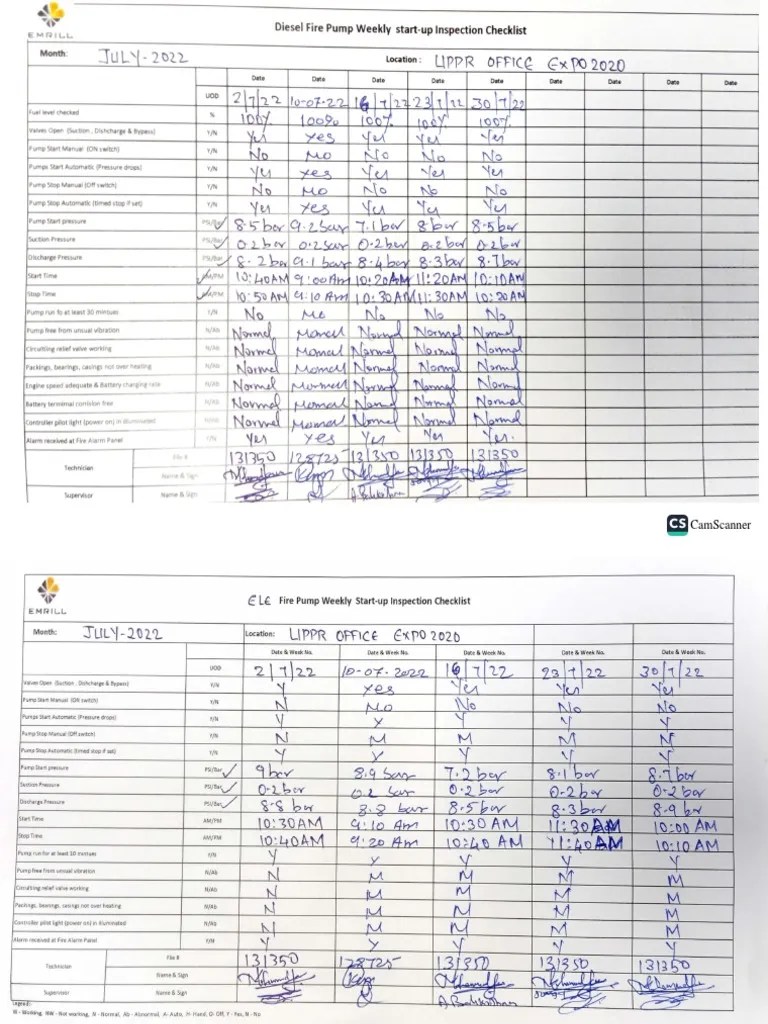 EMRILL
Diesel Fire Pump Weekly start-up Inspection Checklist
Month: JULY-2022 Location: LIPPR OFFICE EXPO2020
Date Date Date Date Date Date Date Date
UOD 2/7/22 10-07-22 16/7/22 23/7/22 30/7/22
Fuel level checked % 100% 100% 100% 100% 100%
Valves Open (Suction, Dishcharge & Bypass) Y/N Yes Yes Yes Yes Yes
Pump Start Manual (ON switch) Y/N No No No No No
Pumps Start Automatic (Pressure drops) Y/N Yes Yes Yes Yes Yes
Pump Stop Manual (Off switch) Y/N No No No No No
Pump Stop Automatic (timed stop if set) Y/N Yes Yes Yes Yes Yes
Pump Start pressure PSI/Bar ✓ 8.5 bar 9.2 bar 7.1 bar 8 bar 8.5 bar
Suction Pressure PSI/Bar ✓ 0.2 bar 0.2 bar 0.2 bar 0.2 bar 0.2 bar
Discharge Pressure PSI/Bar 8.2 bar 9.1 bar 8.4 bar 8.3 bar 8.7 bar
Start Time AM/PM ✓ 10:40 AM 9:00 AM 10:20 AM 11:20 AM 10:10 AM
Stop Time AM/PM ✓ 10:50 AM 9:10 AM 10:30 AM 11:30 AM 10:20 AM
Pump run fo at least 30 mintues Y/N No No No No No
Pump free from unsual vibration N/Ab Normal Normal Normal Normal Normal
Circuitling relief valve working N/Ab Normal Normal Normal Normal Normal
Packings, bearings, casings not over heating N/Ab Normal Normal Normal Normal Normal
Engine speed adequate & Battery charging rate N/Ab Normal Normal Normal Normal Normal
Battery terminal corrision free N/Ab Normal Normal Normal Normal Normal
Controller pilot light (power on) in illuminated N/Ab Normal Normal Normal Normal Normal
Alarm received at Fire Alarm Panel Y/N Yes Yes Yes Yes Yes.
Technician File # 131350 128725 131350 131350 131350
Name & Sign
Supervisor Name & Sign
CS CamScanner
EMRILL
ELE Fire Pump Weekly Start-up Inspection Checklist
Month: JULY-2022 Location: LIPPR OFFICE EXPO 2020
Date & Week No. Date & Week No. Date & Week No. Date & Week No. Date & Week No.
UOD 2/7/22 10-07-2022 16/7/22 23/7/22 30/7/22
Valves Open (Suction, Dishcharge & Bypass) Y/N Y Yes Yes Yes Yes
Pump Start Manual (ON switch) Y/N N No No No No
Pumps Start Automatic (Pressure drops) Y/N Y Y Y Y Y
Pump Stop Manual (Off switch) Y/N N N N N N
Pump Stop Automatic (timed stop if set) Y/N Y Y Y Y Y
Pump Start pressure PSI/Bar ✓ 9 bar 8.9 bar 7.2 bar 8.1 bar 8.7 bar
Suction Pressure PSI/Bar ✓ 0.2 bar 0.2 bar 0.2 bar 0.2 bar 0.2 bar
Discharge Pressure PSI/Bar ✓ 8.8 bar 8.8 bar 8.5 bar 8.3 bar 8.9 br
Start Time AM/PM 10:30 AM 9:10 Am 10:30 AM 11:30 AM 10:00 AM
Stop Time AM/PM 10:40 AM 9:20 Am 10:40 AM 11:40 AM 10:10 AM
Pump run for at least 10 minutes Y/N Y Y Y Y Y
Pump free from unsual vibration N/Ab N N N N N
Circuitling relief valve working N/Ab N N N N N
Packings, bearings, casings not over heating N/Ab N N N N N
Controller pilot light (power on) in illuminated N/Ab N N N N N
Alarm received at Fire Alarm Panel Y/N Y Y Y Y Y
Technician File # 131350 128725 131350 131350 131350
Name & Sign
Supervisor Name & Sign
Legend:
W - Working, NW - Not working, N - Normal, Ab - Abnormal, A- Auto, H- Hand, O- Off, Y - Yes, N - No